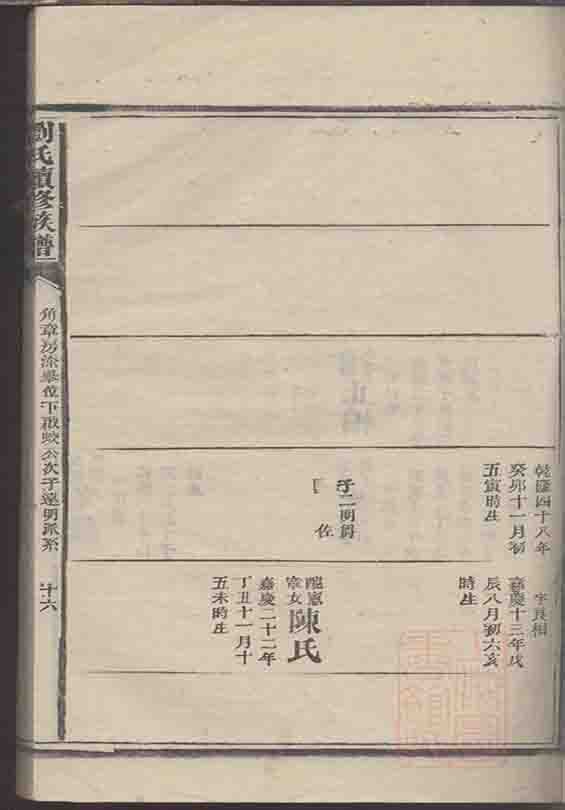 乾隆四十八年
癸卯十一月初
五寅時生
子二明爵
佐
字良相
嘉慶十三年戊
辰八月初六亥
時生
配憲
章女陳氏
嘉慶二十二年
丁丑十一月十
五未時生
劉氏續修族譜
角章房
位下啟蛟公次子遠明派系
十六